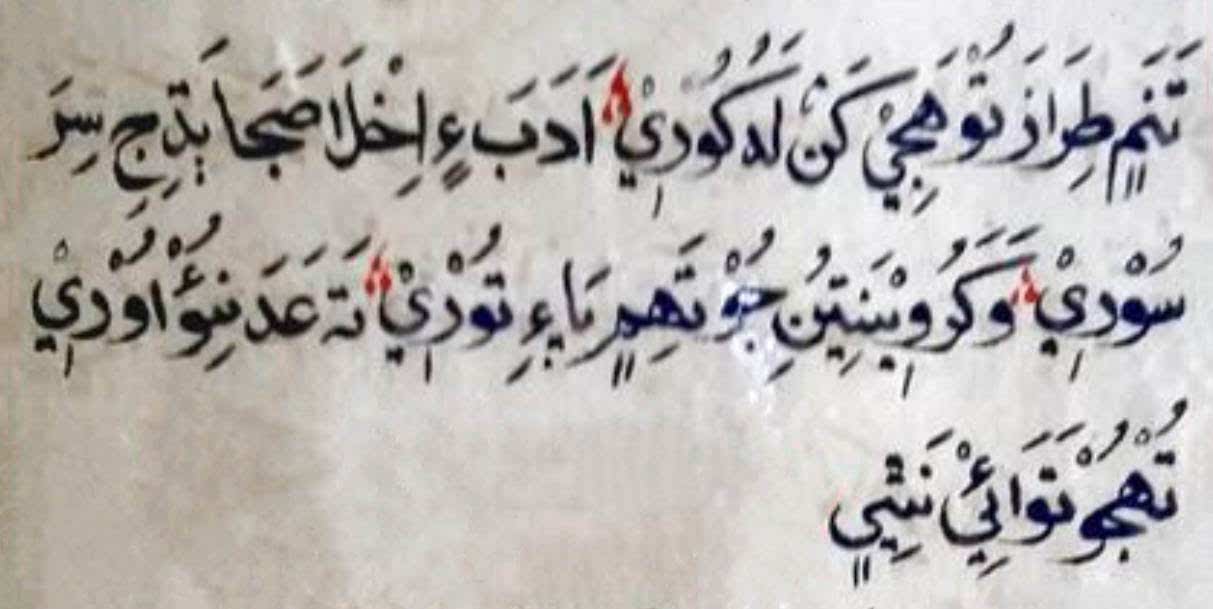 تَنَمٍ طِرَازَ تُوْهِجِيْ كَنْ لَہ كُوْرِيْ اَدَبَ ءٍ اِخْلَاصَجَا بَدِجِ سِرَ
سُوْرِيْ وَكَرُ وِيْنَتِيُنِ جُوْ تَهِمٍ پَاءِ تُوْرِيْ تَہ عَدَنِئُوْ اُوْرِيْ
تُهْجُوْ تَوَائِيْ نَثِيٍ